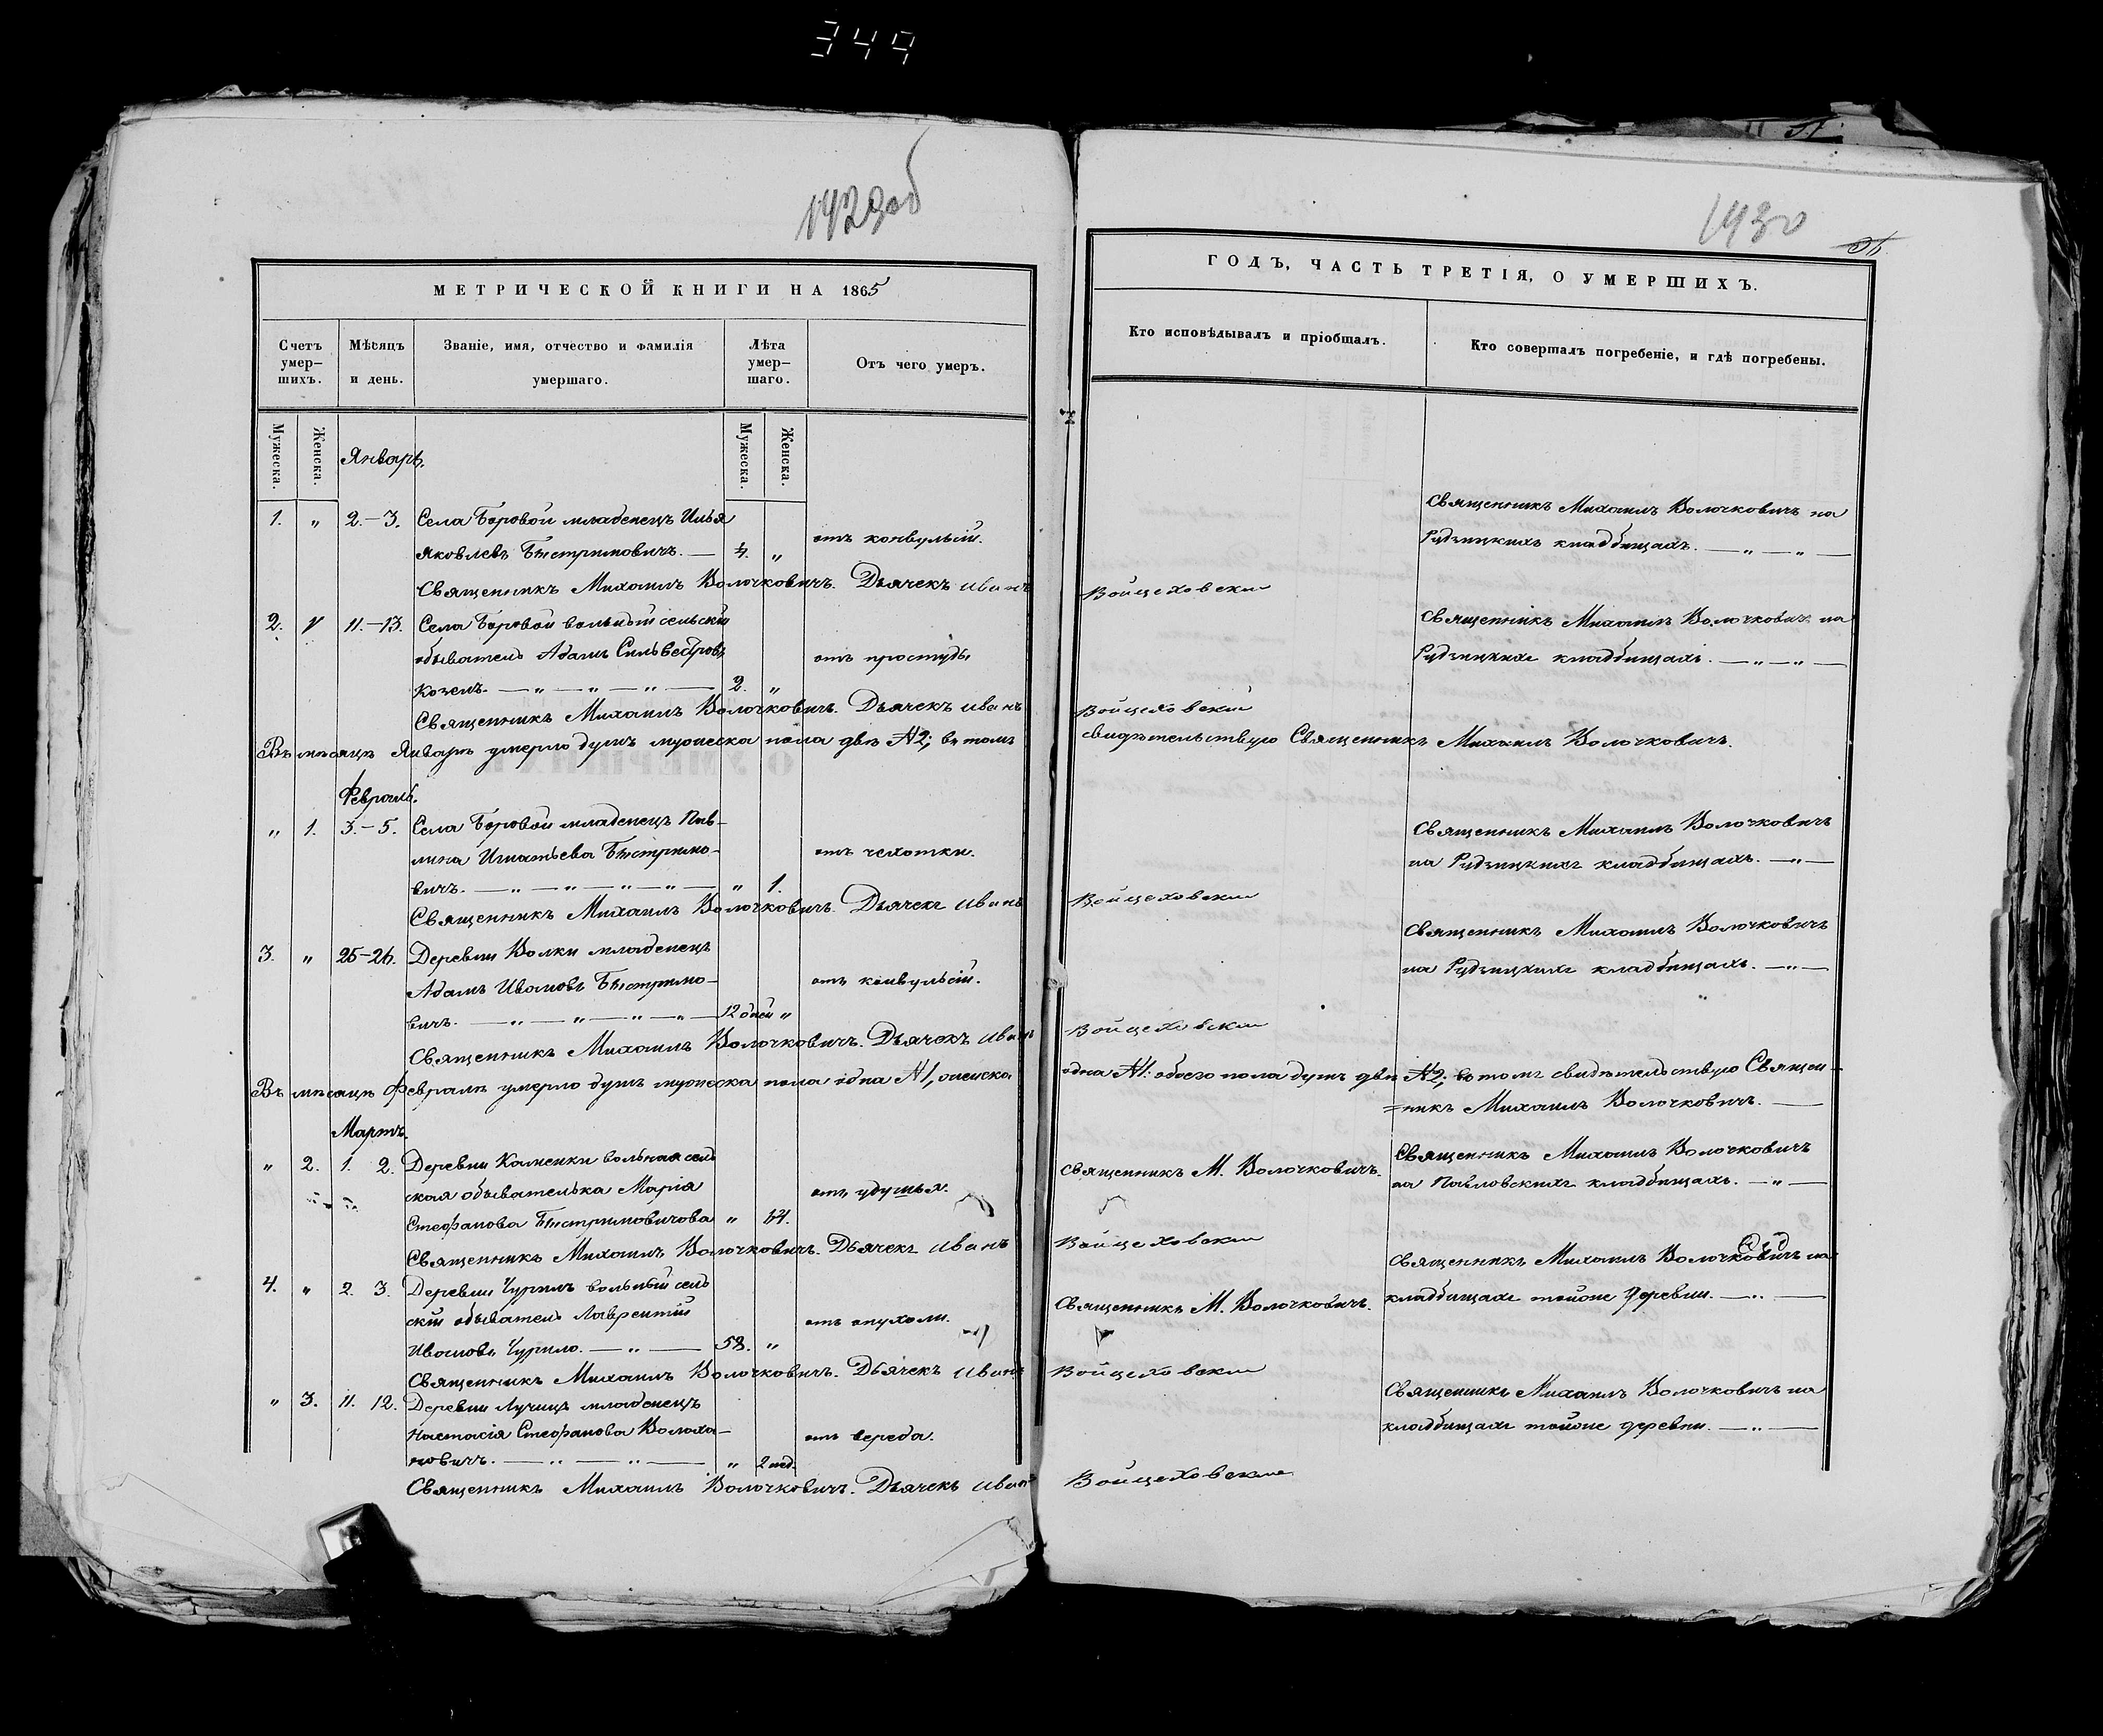 344
1929 об
1930
МЕТРИЧЕСКОЙ КНИГИ НА 1865
ГОДЪ, ЧАСТЬ ТРЕТІЯ, О УМЕРШИХЪ.
Счетъ умер-
шихъ.
Мѣсяцъ
и день.
Званіе, имя, отчество и фамилія
умершаго.
Лѣта
умер-
шаго.
Отъ чего умеръ.
Кто исповѣдывалъ и пріобщалъ.
Кто совершалъ погребеніе, и гдѣ погребены.
Мужеска.
Женска.
Мужеска.
Женска.
Январь.
1. " 2.-3. Села Боровой младенецъ Илья
Яковлевъ Быстримовичъ. — 4. "
отъ конвульсій.
Священникъ Михаилъ Волочковичъ на
Рудзицкихъ кладбищахъ. — " — " —
Священникъ Михаилъ Волочковичъ. Дьячекъ Иванъ Войцеховскій
2. " 11.-13. Села Боровой вольный сельскій
обыватель Адамъ Сильвестровъ
Козелъ. — " — " — " — 2. "
отъ простуды
Священникъ Михаилъ Волочковичъ на
Рудзицкихъ кладбищахъ. — " — " —
Священникъ Михаилъ Волочковичъ. Дьячекъ Иванъ Войцеховскій
Въ мѣсяцѣ Январѣ умерло душъ мужеска пола двѣ №2; въ томъ свидѣтельствую Священникъ Михаилъ Волочковичъ.
Февраль.
" 1. 3.-5. Села Боровой младенецъ Пав-
лина Игнатьева Быстримо-
вичъ. — " — " — " — " — " 1.
отъ чахотки.
Священникъ Михаилъ Волочковичъ
на Рудзицкихъ кладбищахъ. — " —
Священникъ Михаилъ Волочковичъ. Дьячекъ Иванъ Войцеховскій
3. " 25-26. Деревни Волки младенецъ
Адамъ Ивановъ Быстримо-
вичъ. — " — " — " — " — 12 дней "
отъ конвульсій.
Священникъ Михаилъ Волочковичъ
на Рудзицкихъ кладбищахъ. — " —
Священникъ Михаилъ Волочковичъ. Дьячекъ Иванъ Войцеховскій
Въ мѣсяцѣ Февралѣ умерло душъ мужеска пола одна №1, женска одна №1: обоего пола душъ двѣ №2; въ томъ свидѣтельствую Священ-
=никъ Михаилъ Волочковичъ. —
Мартъ.
" 2. 1. 2. Деревни Каменки вольная сель
ская обывателька Марія
Стефанова Быстримовичова " 64.
отъ удушья.
Священникъ М. Волочковичъ.
Священникъ Михаилъ Волочковичъ
на Павловскихъ кладбищахъ. — " —
Священникъ Михаилъ Волочковичъ. Дьячекъ Иванъ Войцеховскій
4. " 2. 3. Деревни Чурилъ вольный сель
скій обыватель Лаврентій
Ивановъ Чурило. — " — 58. "
отъ опухоли.
Священникъ М. Волочковичъ.
Священникъ Михаилъ Волочковичъ на
кладбищахъ тойже деревни. — " —
Священникъ Михаилъ Волочковичъ. Дьячекъ Иванъ Войцеховскій
" 3. 11. 12. Деревни Лучицъ младенецъ
Настасія Стефанова Волоха-
новичъ. — " — " — " 2 нед.
отъ вереда.
Священникъ Михаилъ Волочковичъ на
кладбищахъ тойже деревни. — " —
Священникъ Михаилъ Волочковичъ. Дьячекъ Иванъ Войцеховскій